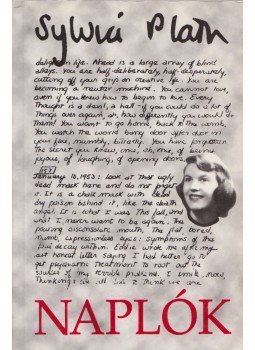 Sylvia Plath
delight in life. Ahead is a large array of blind
alleys. You are half-deliberately, half-desperately,
cutting off your grip on creative life. You are
becoming a neuter machine. You cannot love,
even if you knew how to begin to love. Every
thought is a devil, a hell - if you could do a lot of
things over again, ah, how differently you would do
them! You want to go home, back to the womb.
You watch the world bang door after door in
your face, numbly, bitterly. You have forgotten
the secret you knew, once, ah, once, of being
joyous, of laughing, of opening doors.
January 10, 1953: Look at that ugly
dead mask here and do not forget
it. It is a chalk mask with dead
dry poison behind it, like the death
angel. It is what I was this fall, and
what I never want to be again. The
pouting disconsolate mouth, the flat, bored,
numb, expressionless eyes: symptoms of the
foul decay within. Eddie wrote me after my
last honest letter saying I had better go to
get psychiatric treatment to root out the
sources of my terrible problems. I smile, now,
thinking: we all like to think we are
NAPLÓK